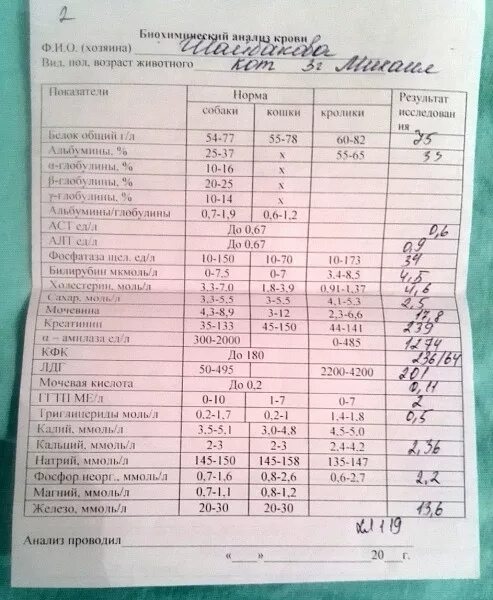 2
Биохимический анализ крови
Ф.И.О. (хозяина)
Вид, пол, возраст животного кот 3г Михаил
Показатели Норма Результат исследования
собаки кошки кролики
Белок общий г/л 54-77 55-78 60-82 75
Альбумины, % 25-37 x 55-65 35
α-глобулины, % 10-16 x
β-глобулины, % 20-25 x
γ-глобулины, % 10-14 x
Альбумины/глобулины 0,7-1,9 0,6-1,2
АСТ ед/л До 0,67 0,6
АЛТ ед/л До 0,67 0,9
Фосфатаза щел. ед/л 10-150 10-70 10-173 34
Билирубин мкмоль/л 0-7,5 0-7 3,4-8,5 4,5
Холестерин, моль/л 3,3-7,0 1,8-3,9 0,91-1,37 4,6
Сахар, моль/л 3,3-5,5 3-5,5 4,1-5,3 2,5
Мочевина 4,3-8,9 3-12 2,3-6,6 17,8
Креатинин 35-133 45-150 44-141 239
α – амилаза ед/л 300-2000 0-485 1274
КФК До 180 236/64
ЛДГ 50-495 2200-4200 201
Мочевая кислота До 0,2 0,11
ГГТП МЕ/л 0-10 1-7 0-7 2
Триглицериды моль/л 0,2-1,7 0,2-1 1,4-1,8 0,5
Калий, ммоль/л 3,5-5,1 3,0-4,8 4,5-5,0
Кальций, ммоль/л 2-3 2-3 2,4-4,2 2,36
Натрий, ммоль/л 145-150 145-158 135-147
Фосфор неорг., ммоль/л 0,7-1,6 0,8-2,6 0,6-2,7 2,2
Магний, ммоль/л 0,7-1,1 0,8-1,2
Железо, ммоль/л 20-30 20-30 13,6
Анализ проводил
«___» 20__г.